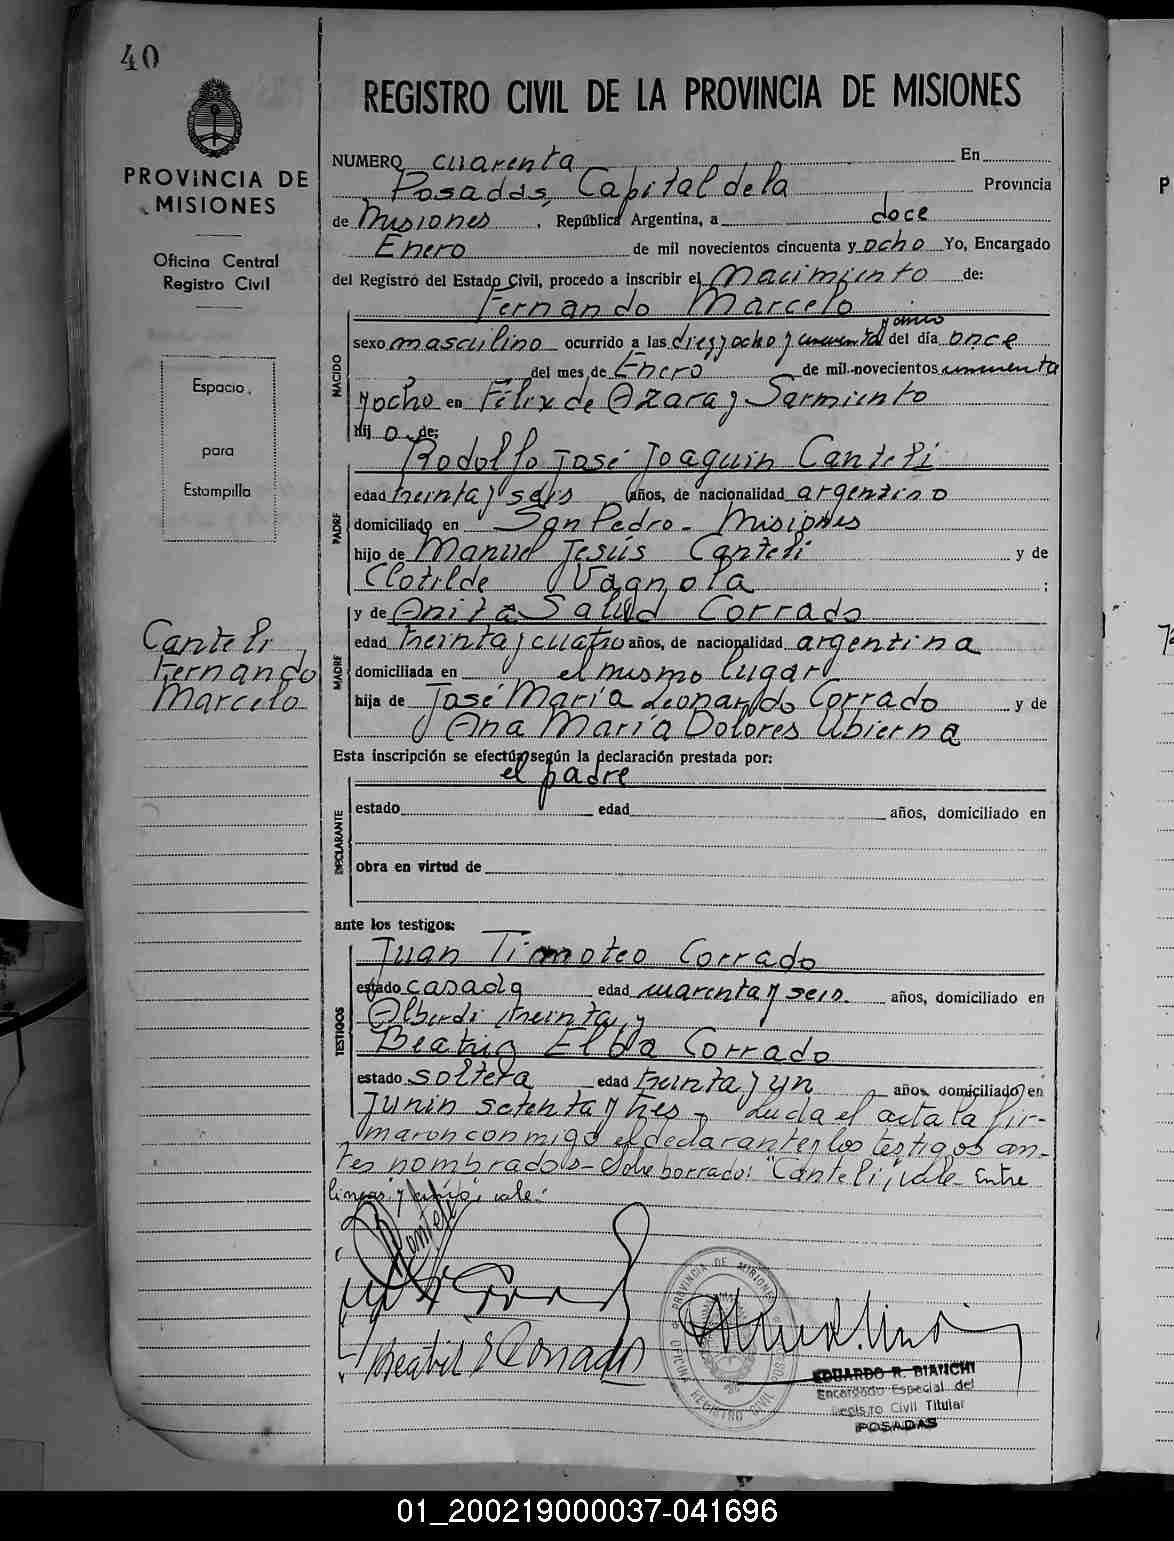 40
PROVINCIA DE
MISIONES
Oficina Central
Registro Civil
Espacio
para
Estampilla
Canteli
Fernando
Marcelo
REGISTRO CIVIL DE LA PROVINCIA DE MISIONES
NUMERO cuarenta En
Posadas, Capital de la Provincia
de Misiones, República Argentina, a doce
Enero de mil novecientos cincuenta y ocho Yo, Encargado
del Registro del Estado Civil, procedo a inscribir el nacimiento de:
Fernando Marcelo
y cinco
NACIDO
sexo masculino ocurrido a las diez y ocho y cincuenta del día once
del mes de Enero de mil novecientos cincuenta
y ocho en Félix de Azara y Sarmiento
hij o de:
Rodolfo José Joaquin Canteli
PADRE
edad treinta y seis años, de nacionalidad argentino
domiciliado en San Pedro - Misiones
hijo de Manuel Jesús Canteli y de
Clotilde Vagnola ;
y de Anita Salud Corrado
MADRE
edad treinta y cuatro años, de nacionalidad argentina
domiciliada en el mismo lugar
hija de José María Leonardo Corrado y de
Ana María Dolores Ubierna
Esta inscripción se efectúa según la declaración prestada por:
el padre
DECLARANTE
estado edad años, domiciliado en
obra en virtud de
ante los testigos:
TESTIGOS
Juan Timoteo Corrado
estado casado edad cuarenta y seis años, domiciliado en
Alberdi treinta, y
Beatriz Elba Corrado
estado soltera edad treinta y un años, domiciliado en
Junin setenta y tres - Leida el acta la fir-
maron conmigo el declarante y los testigos an-
tes nombrados - Sobre borrado: "Canteli", vale - Entre
lineas: y cinco, vale.
Canteli
Beatriz E Corrado
PROVINCIA DE MISIONES
OFICINA REGISTRO CIVIL POS
EDUARDO R. BIANCHI
Encargado Especial del
Registro Civil Titular
POSADAS
01_200219000037-041696